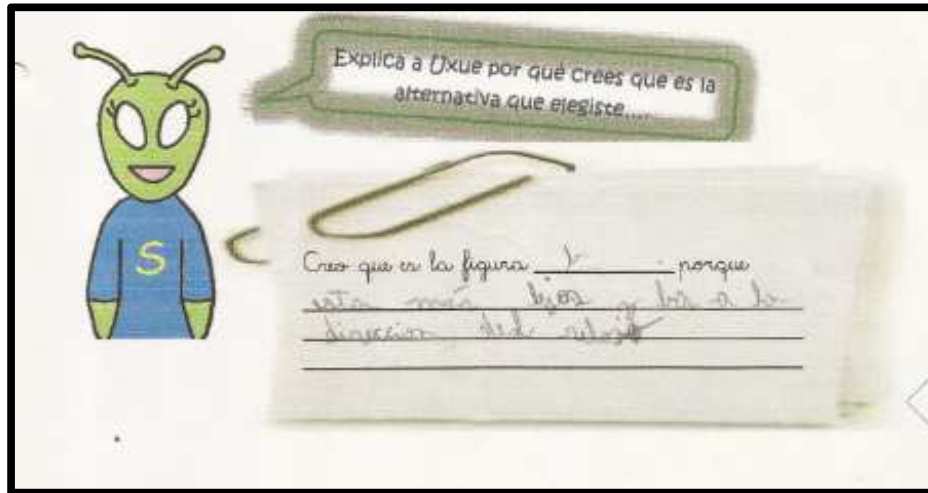 Explica a Uxue por qué crees que es la
alternativa que elegiste....
S
Creo que es la figura b porque
esta mas lejos y
dirección del reloj